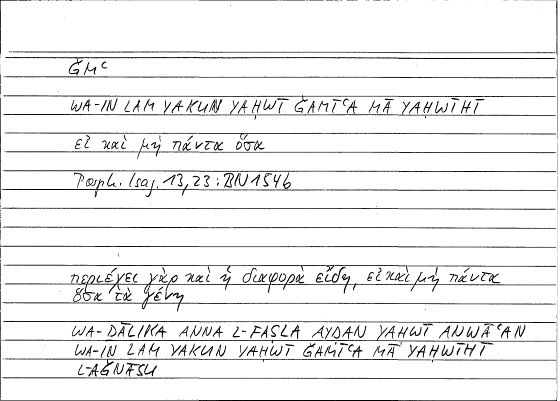 ǦMʿ
WA-IN LAM YAKUN YAḤWĪ ǦAMĪʿA MĀ YAḤWĪHĪ
εἰ καὶ μὴ πάντα ὅσα
Porph. Isag. 13,23 : BN 154b
περιέχει γὰρ καὶ ἡ διαφορὰ εἴδη, εἰ καὶ μὴ πάντα
ὅσα τὰ γένη
WA-ḎĀLIKA ANNA L-FAṢLA AYḌAN YAḤWĪ ANWĀʿAN
WA-IN LAM YAKUN YAḤWĪ ǦAMĪʿA MĀ YAḤWĪHĪ
L-AǦNĀSU